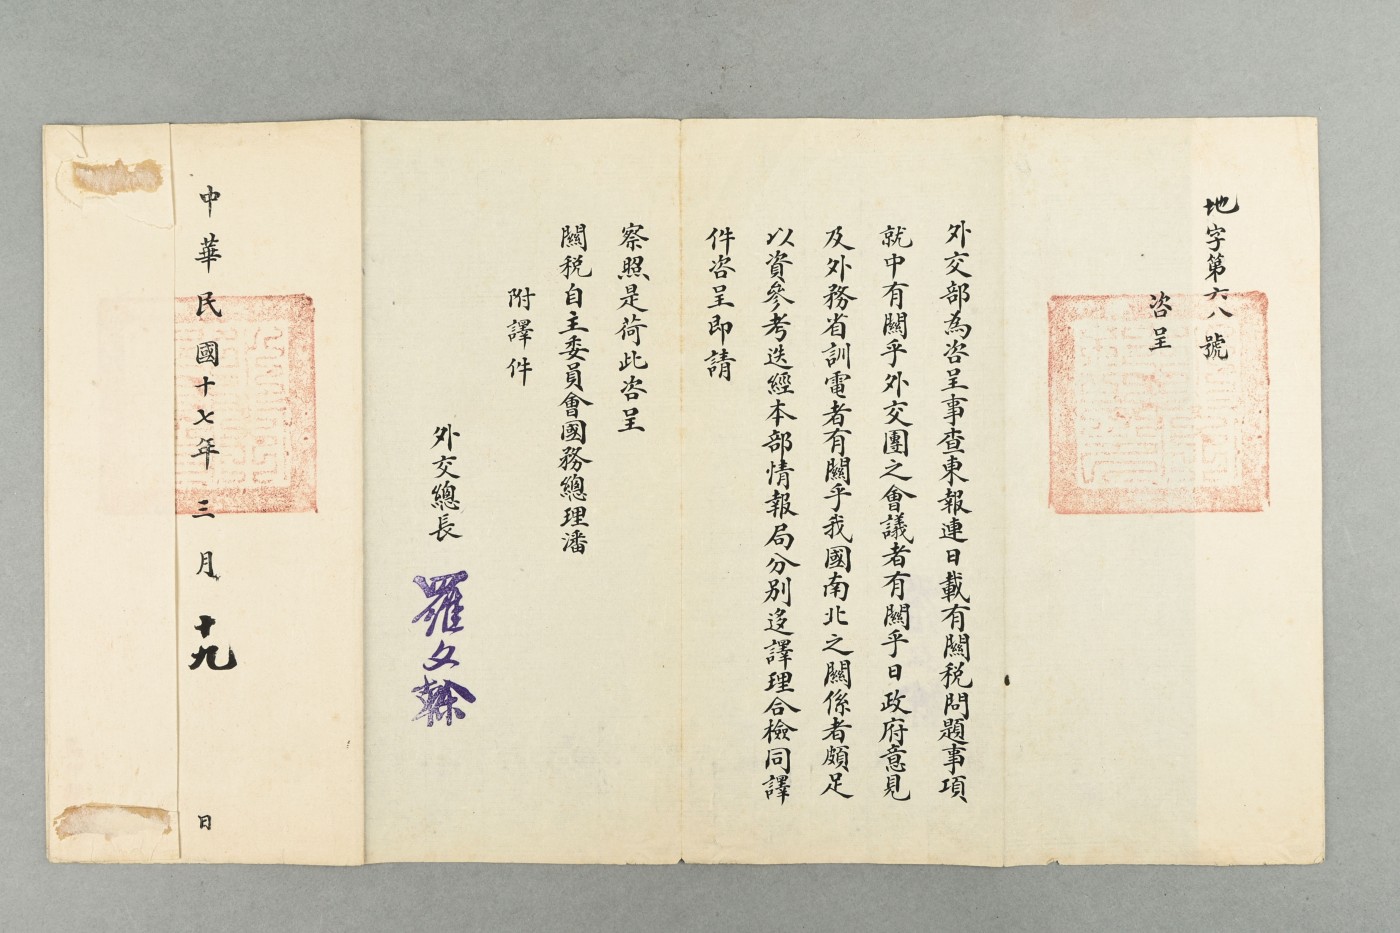 地字第六八號
咨呈
外交部為咨呈事查東報連日載有關稅問題事項
就中有關乎外交團之會議者有關乎日政府意見
及外務省訓電者有關乎我國南北之關係者頗足
以資參考迭經本部情報局分別迻譯理合檢同譯
件咨呈即請
察照是荷此咨呈
關稅自主委員會國務總理潘
附譯件
外交總長
羅文榦
中華民國十七年三月十九日